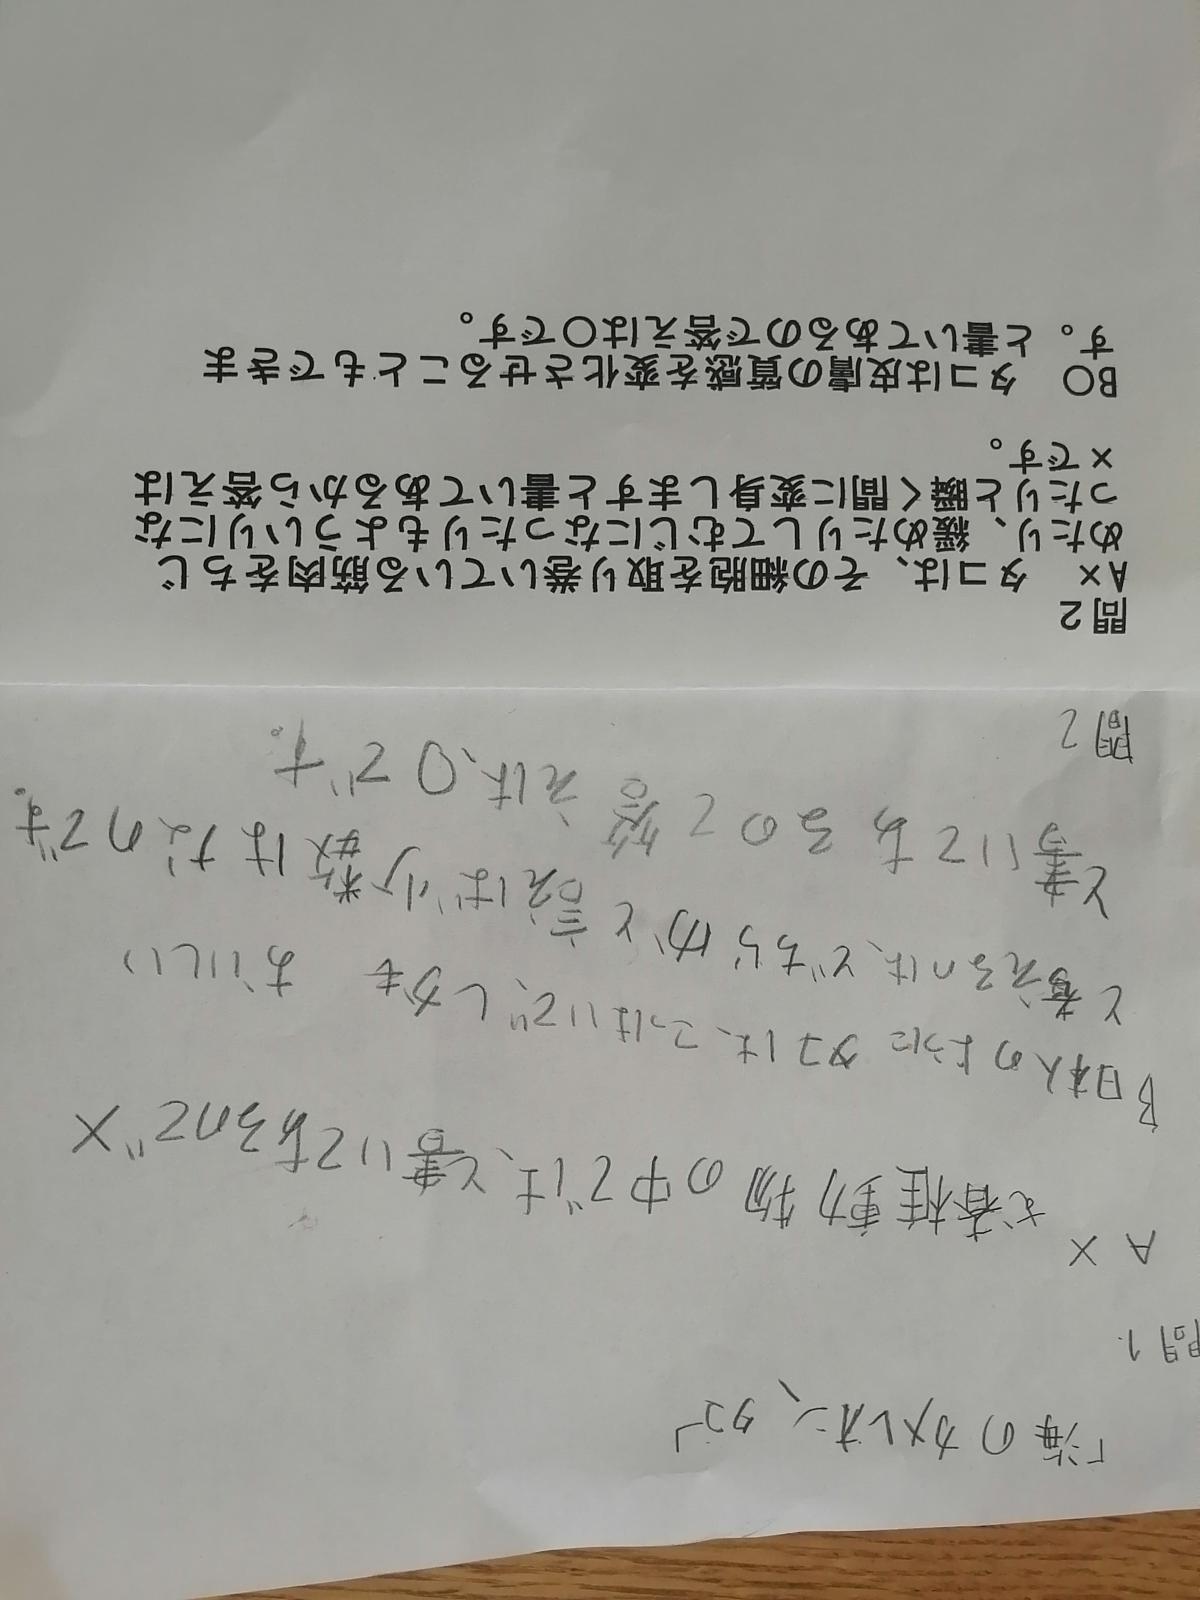 「海のカメレオン、タコ」
問1.
A ×
せ脊椎動物の中では、と書いてあるので×
B日本人のように タコは、こわいで、しかも おいしい
と考えるのは、どちらかと言えば少数はなのです。
と書いてあるので答えは、○です。
問2
問２
A× タコは、その細胞を取り巻いている筋肉をちじ
めたり、緩めたりしてむじになったりもよういりにな
ったりと瞬く間に変身しますと書いてあるから答えは
×です。
B○ タコは皮膚の質感を変化させることもできま
す。と書いてあるので答えは○です。